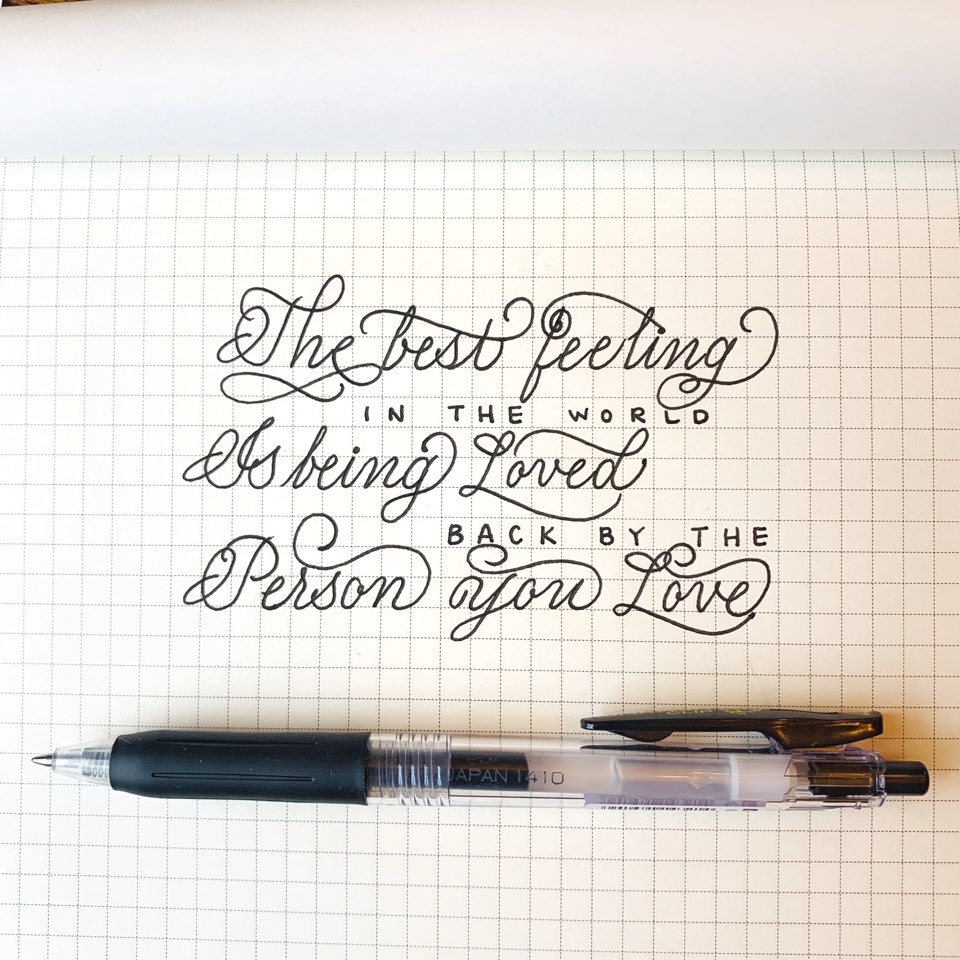 The best feeling
IN THE WORLD
Is being Loved
BACK BY THE
Person you Love
JAPAN 1410